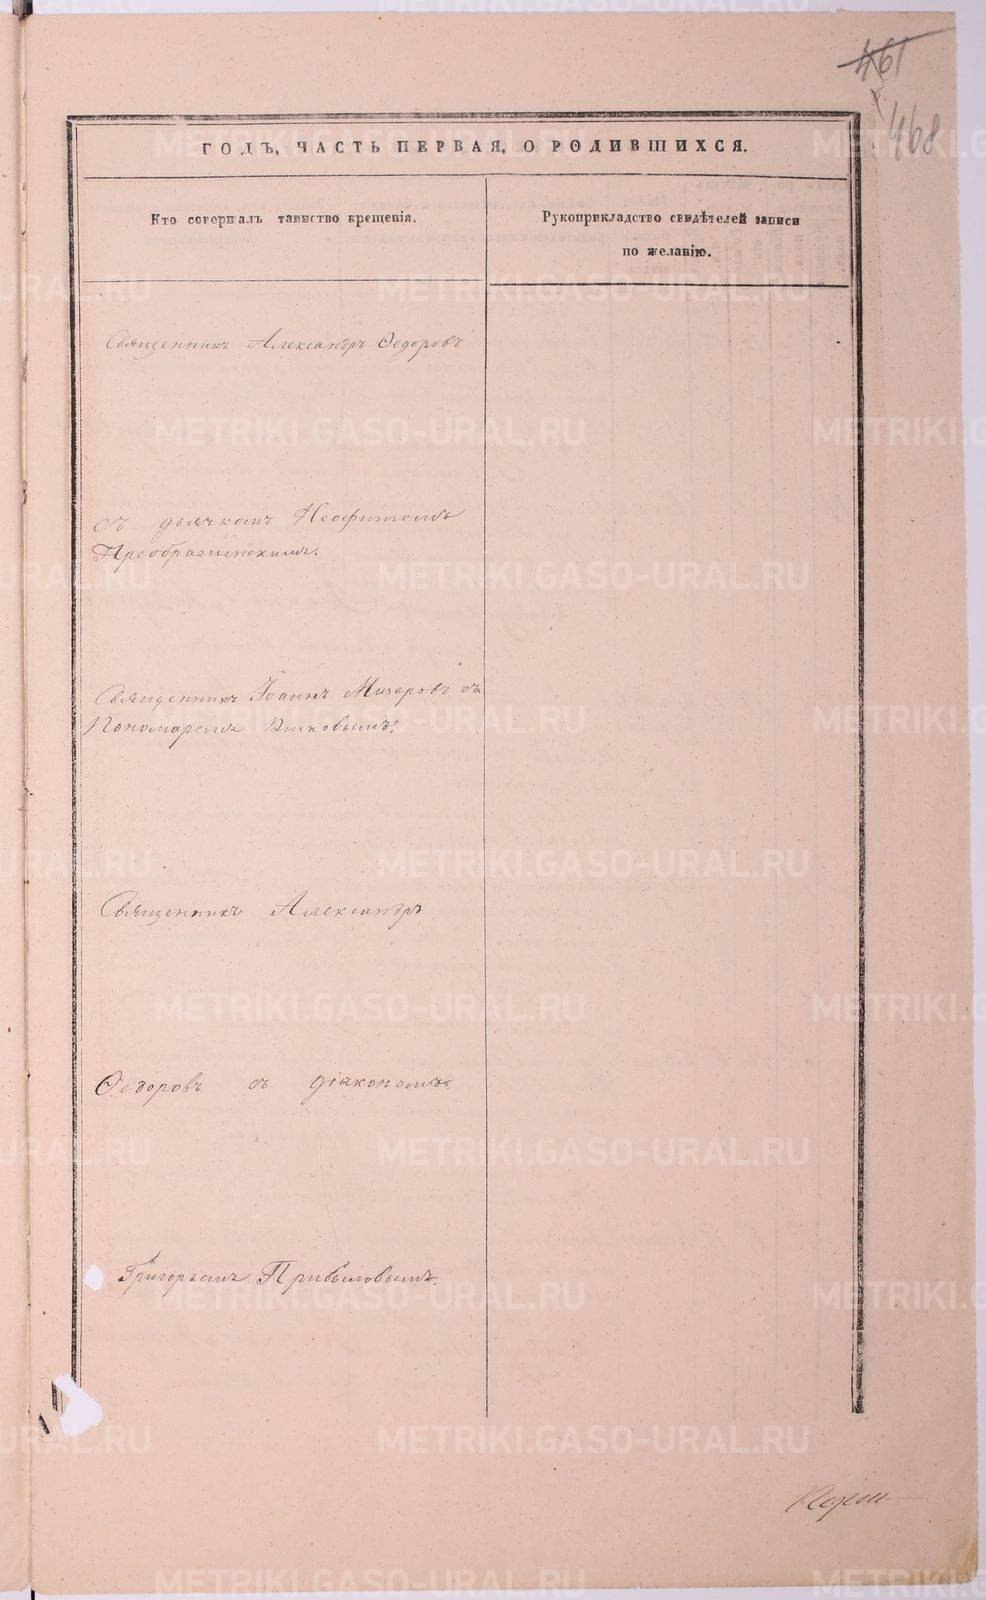 461
468
ГОДЪ, ЧАСТЬ ПЕРВАЯ, О РОДИВШИХСЯ.
Кто совершалъ таинство крещенія.
Рукоприкладство свидѣтелей записи
по желанію.
Священникъ Александръ Ѳедоровъ
съ дьячкомъ Неофитомъ
Преображенскимъ.
Священникъ Іоаннъ Мизеровъ съ
Пономаремъ
Священникъ Александръ
Ѳедоровъ съ діакономъ
Григорьемъ Прибыловымъ.
METRIKI.GASO-URAL.RU